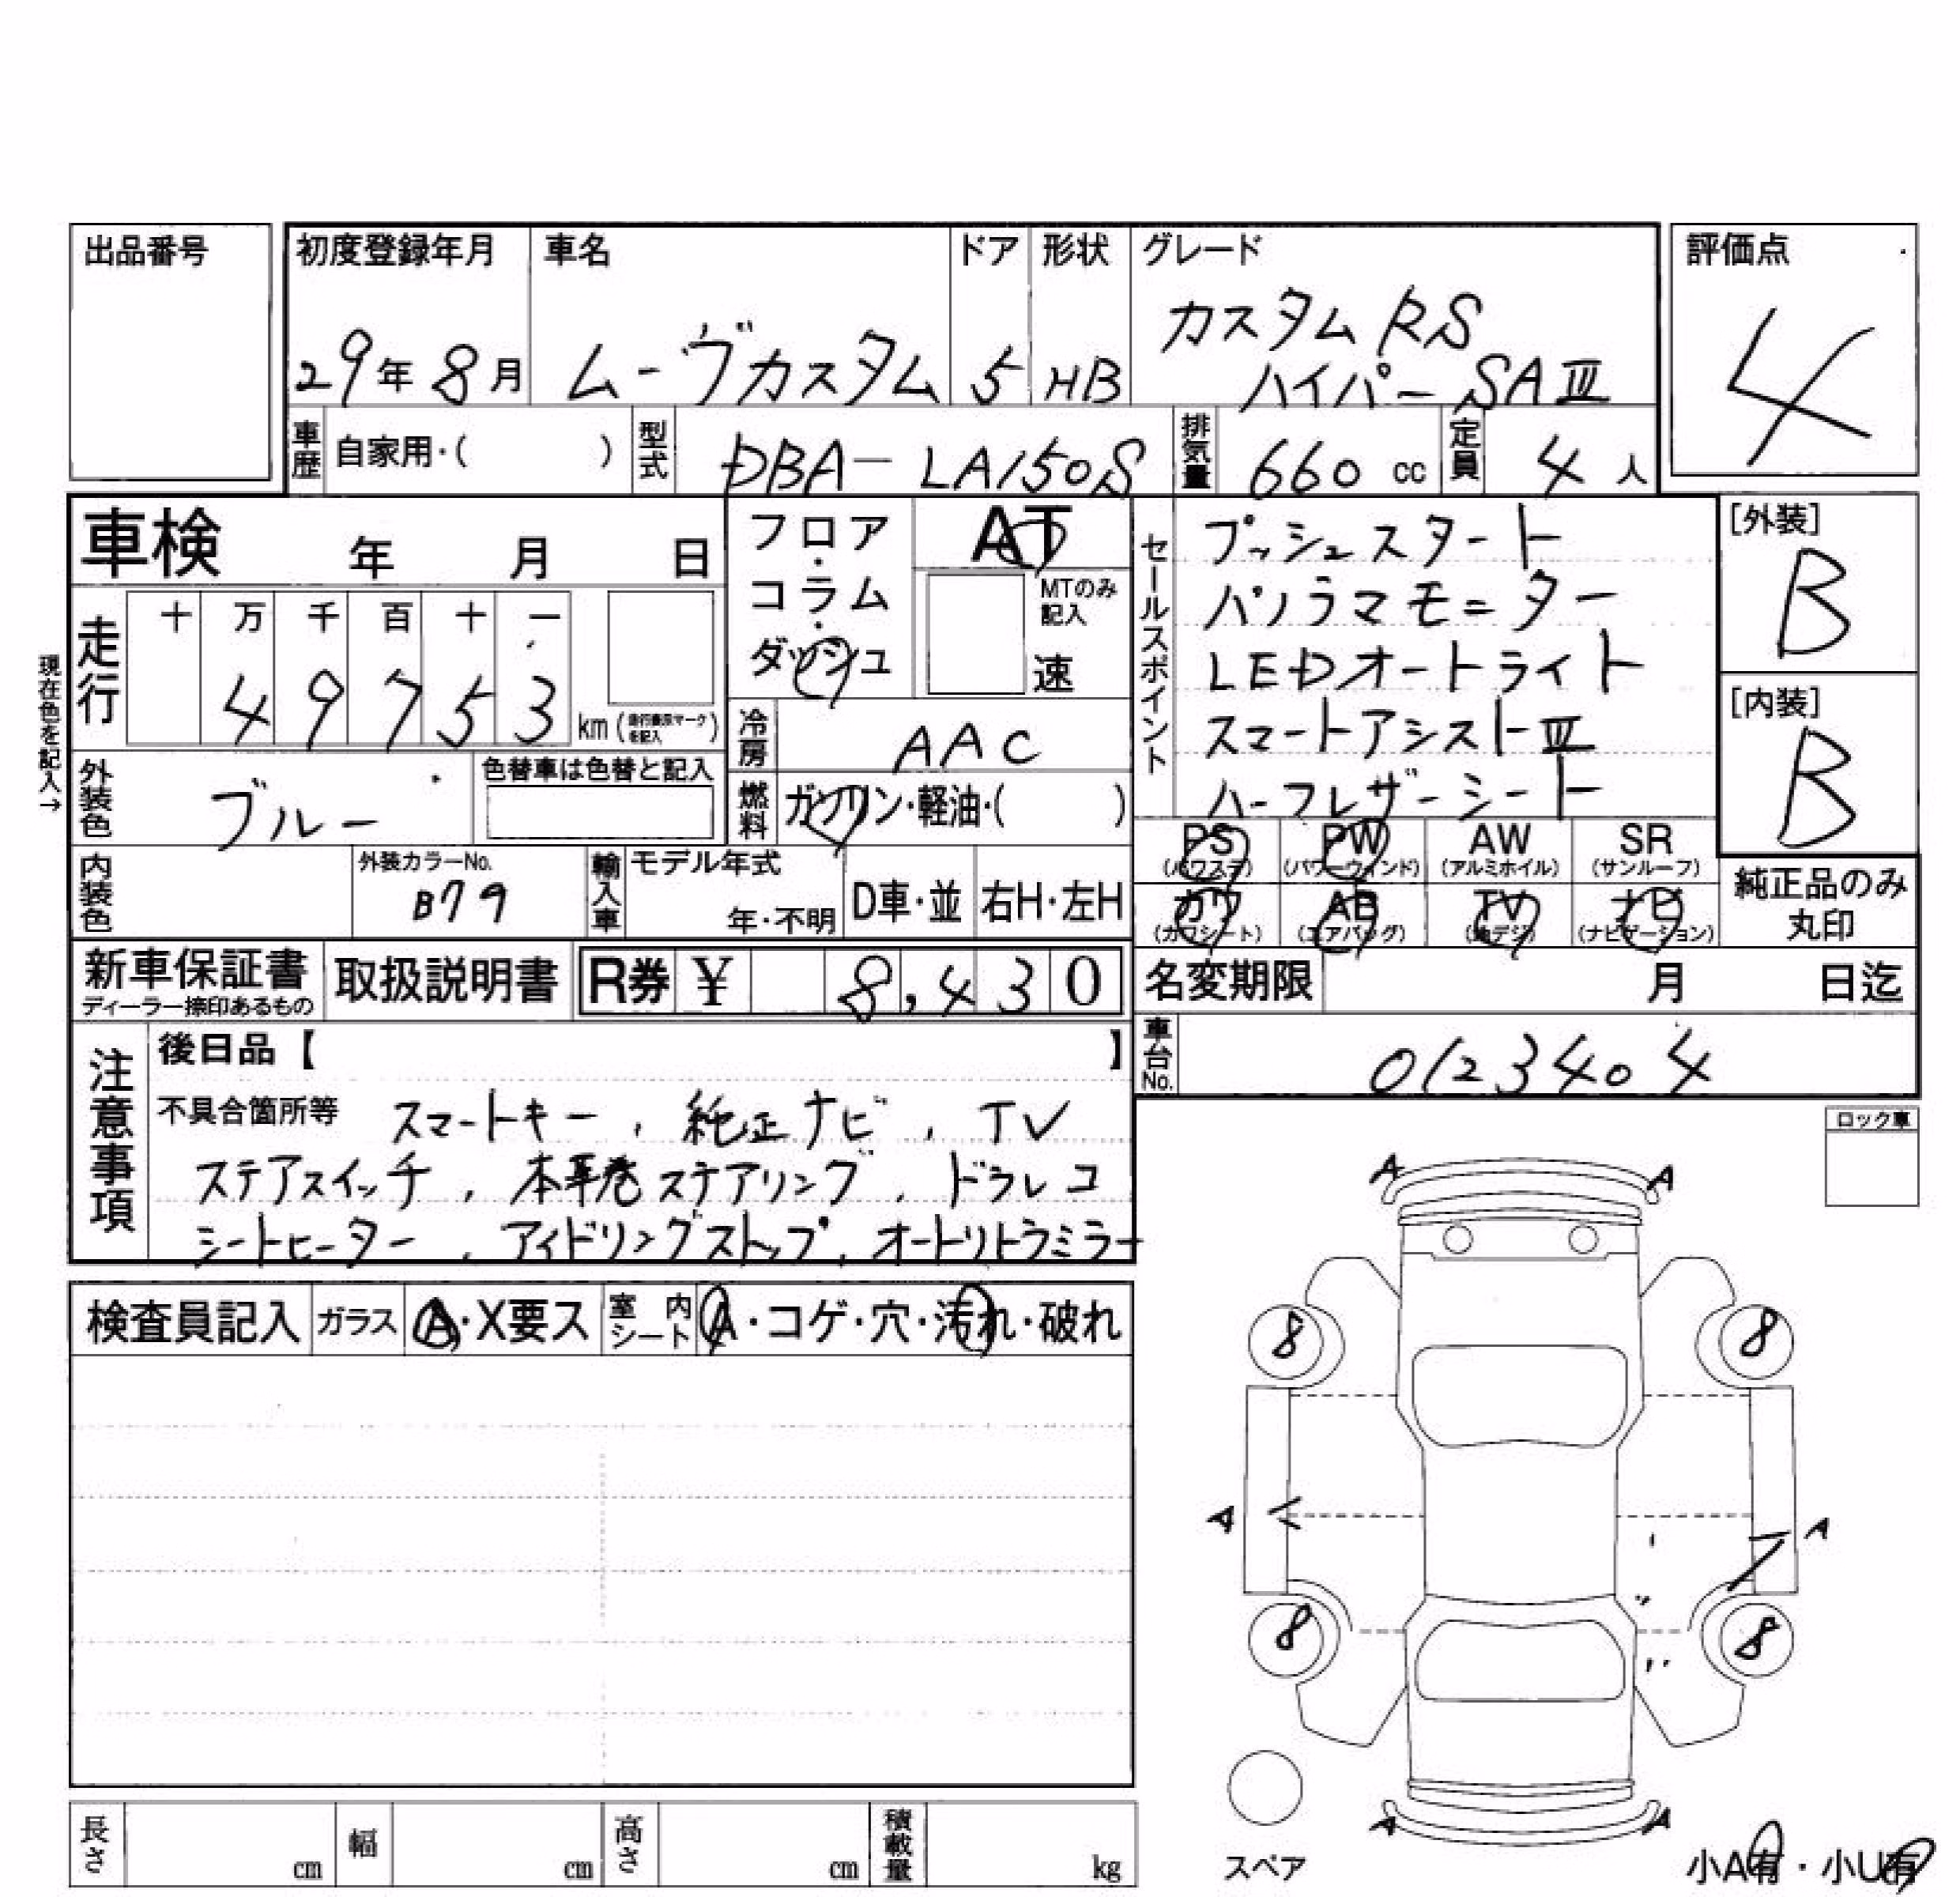 出品番号
初度登録年月 車名 ドア 形状 グレード 評価点
カスタム RS
29年 8月 ムーヴカスタム 5 HB ハイパー SAⅢ 4
車歴 自家用・( ) 型式 DBA-LA150S 排気量 660 cc 定員 4 人
車検 年 月 日
フロア・コラム・ダッシュ AT
MTのみ記入
速
セールスポイント
プッシュスタート
パノラマモニター
LEDオートライト
スマートアシストⅢ
ハーフレザーシート
[外装]
B
[内装]
B
現在色を記入→
走行 十 万 千 百 十 一
4 9 7 5 3 km (走行表示マークを記入)
冷房 AAC
外装色 ブルー 色替車は色替と記入
燃料 ガソリン・軽油・( )
PS (パワステ) PW (パワーウィンド) AW (アルミホイル) SR (サンルーフ)
カワ (カワシート) AB (エアバッグ) TV (地デジ) ナビ (ナビゲーション)
純正品のみ
丸印
内装色 外装カラーNo. B79 輸入車 モデル年式 年・不明 D車・並 右H・左H
新車保証書 ディーラー捺印あるもの 取扱説明書 R券 ¥ 8,430
名変期限 月 日迄
車台No. 0123404
注意事項
後日品【 】
不具合箇所等 スマートキー, 純正ナビ, TV
ステアスイッチ, 本革巻ステアリング, ドラレコ
シートヒーター, アイドリングストップ, オートリトラミラー
ロック車
A A
検査員記入 ガラス A・X要ス 室内シート A・コゲ・穴・汚れ・破れ
8 8
A A
8 8
A A
スペア
小A有・小U有
長さ cm 幅 cm 高さ cm 積載量 kg